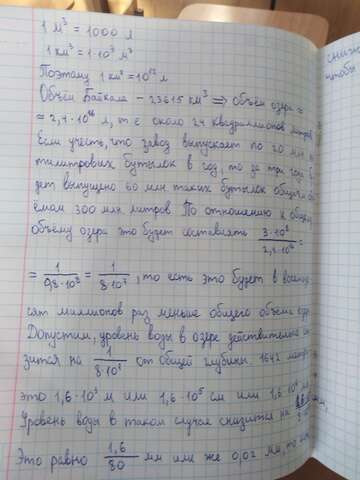 1 м³ = 1000 л
1 км³ = 1·10⁹ м³
Поэтому 1 км³ = 10¹² л
Объём Байкала – 23615 км³ ⟹ объём озера ≈
≈ 2,4·10¹⁶ л, т.е. около 24 квадриллионов литров
Если учесть, что завод выпускает по 20 млн
тилитровых бутылок в год, то за три года бу
дет выпущено 60 млн таких бутылок общим об
ёмом 300 млн литров По отношению к общему
объёму озера это будет составлять 3·10⁸/2,4·10¹⁶ =
= 1/0,8·10⁸ = 1/8·10⁷, то есть это будет в восемьде
сят миллионов раз меньше общего объёма озера
Допустим, уровень воды в озере действительно
зится на 1/8·10⁷ от общей глубины 1642 метра
это 1,6·10³ м или 1,6·10⁵ см или 1,6·10⁶ мм
Уровень воды в таком случае снизится на
Это равно 1,6/80 мм или же 0,02 мм,
сниже
чтобы